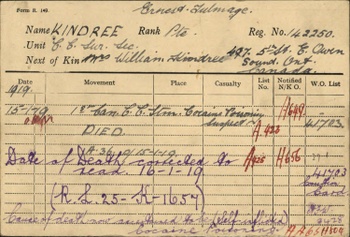 Form R. 140.
Ernest Tulmage.
Name KINDREE Rank Pte Reg. No. 142250.
Unit C. C. Sur. Sec.
Next of Kin Mrs William Kindree 427. 5th St. E Owen
Sound. Ont.
Canada.
Date Movement Place Casualty List No. Notified N/K O. W.O. List
1919.
15-1-19 1st Can. C. C. Stn. Cocaine Poisoning
DIED. A 925 41703
A 36 15-1-19
Date of Death corrected to A925 H656
read. 16-1-19 41703
(R.L. 25-K-1657)
Cause of death now Self inflicted
Cocaine Poisoning